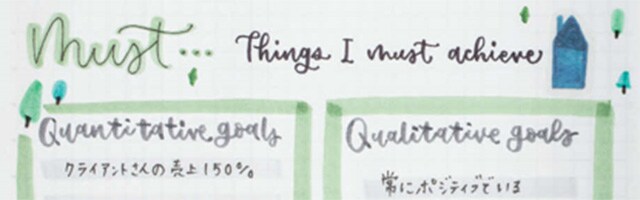 Must... Things I must achieve
Quantitative goals
クライアントさんの売上150%
Qualitative goals
常にポジティブでいる